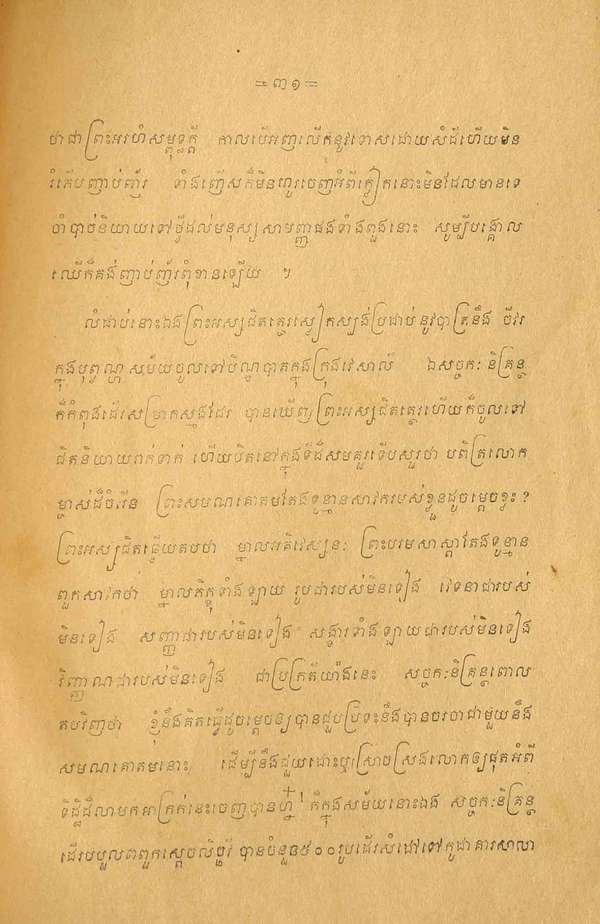 = ៣១ =
ថាជាព្រះអរហំសម្ពុទ្ធក្តី កាលបើអញលើកនូវទោសដោយសំដីហើយមិន
រំភើបញាប់ញ័រ ទាំងញើសក៏មិនហូរចេញអំពីក្លៀកនោះមិនដែលមានទេ
ចាំបាច់និយាយទៅថ្វីដល់មនុស្សសាមញ្ញផងទាំងពួងនោះ សូម្បីបង្គោល
ឈើក៏គង់ញាប់ញ័រពុំខានឡើយ ។
លំដាប់នោះឯង ព្រះអស្សជិតត្ថេរស្លៀកស្បង់ប្រដាប់នូវបាត្រនឹង ចីវរ
ក្នុងបុព្វណ្ហសម័យចូលទៅបិណ្ឌបាតក្នុងក្រុងវេសាលី ឯសច្ចកៈនិគ្រន្ថ
ក៏កំពុងដើរសម្រាកស្មងដែរ បានឃើញព្រះអស្សជិតត្ថេរហើយក៏ចូលទៅ
ជិតនិយាយពាក់ទាក់ ហើយឋិតនៅក្នុងទីដ៏សមគួរទើបសួរថា បពិត្រលោក
ម្ចាស់ដ៏ចំរើន ព្រះសមណគោតមតែងទូន្មានសាវករបស់ខ្លួនដូចម្តេចខ្លះ?
ព្រះអស្សជិតឆ្លើយតបថា ម្នាលអគ្គិវេស្សនៈ ព្រះបរមសាស្តាតែងទូន្មាន
ពួកសាវកថា ម្នាលភិក្ខុទាំងឡាយ រូបជារបស់មិនទៀង វេទនាជារបស់
មិនទៀង សញ្ញាជារបស់មិនទៀង សង្ខារទាំងឡាយជារបស់មិនទៀង
វិញ្ញាណជារបស់មិនទៀង ជាប្រក្រតីយ៉ាងនេះ សច្ចកៈនិគ្រន្ថពោល
តបវិញថា ខ្ញុំនឹងគិតធ្វើដូចម្តេចឲ្យបានជួបប្រទះនឹងបានចរចាជាមួយនឹង
សមណគោតមនោះ ដើម្បីនឹងជួយដោះឬស្រោចស្រង់លោកឲ្យផុតអំពី
ទិដ្ឋិដ៏លាមកអាក្រក់នេះចេញបានហ្ន៎ ក៏ក្នុងសម័យនោះឯង សច្ចកៈនិគ្រន្ថ
ដើរបបួលពពួកស្តេចលិច្ឆវី បានចំនួន៥០០រូបដើរសំដៅទៅកូដាគារសាលា